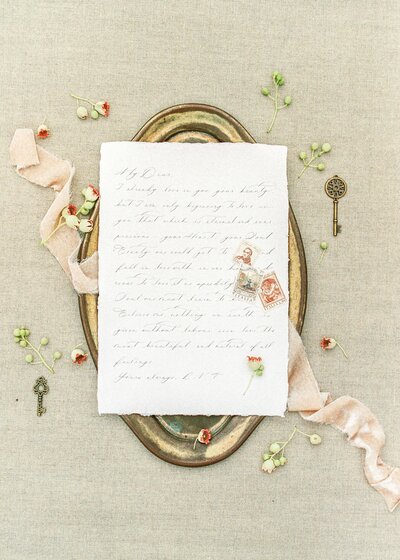 My Dear,
I already love in you your beauty
but I am only beginning to love in
you that which is eternal and ever
precious - your heart, your soul
Beauty one could get to and
fall in love with in one hour and
cease to love it as speedily
Soul one must learn to
Believe me, nothing on earth is
given without labour even love, the
most beautiful and natural of all
feelings.
Yours always, L. N. T